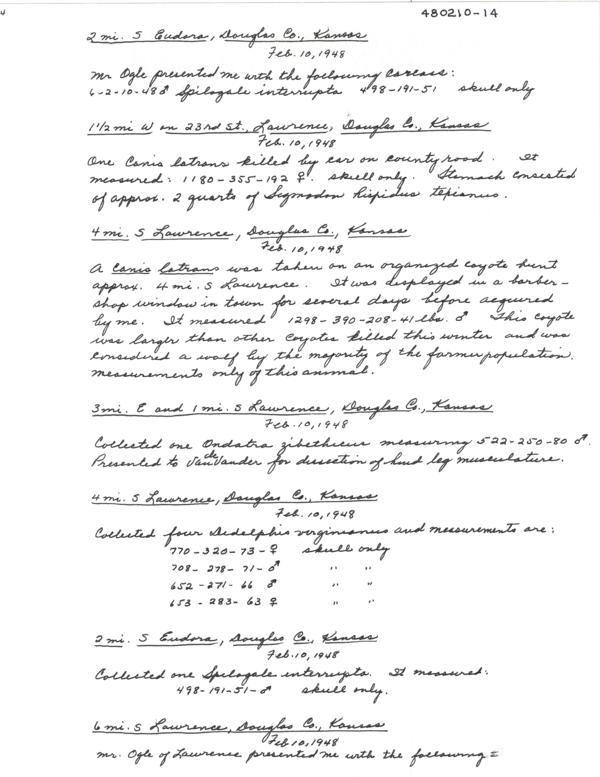 480210-14
2 mi. S Eudora, Douglas Co., Kansas
Feb. 10, 1948
Mr Ogle presented me with the following carcass:
6-2-10-48♂ Spilogale interrupta 498-191-51 skull only
1½ mi W on 23rd St., Lawrence, Douglas Co., Kansas
Feb. 10, 1948
One Canis latrans killed by car on county road. It
measured: 1180-355-192 ♀. skull only. Stomach consisted
of approx. 2 quarts of Sigmodon hispidus texianus.
4 mi. S Lawrence, Douglas Co., Kansas
Feb. 10, 1948
A Canis latrans was taken on an organized coyote hunt
approx. 4 mi. S Lawrence. It was displayed in a barber-
shop window in town for several days before acquired
by me. It measured 1298-390-208-41-lbs. ♂ This coyote
was larger than other coyotes killed this winter and was
considered a wolf by the majority of the farmer population.
measurements only of this animal.
3 mi. E and 1 mi. S Lawrence, Douglas Co., Kansas
Feb. 10, 1948
Collected one Ondatra zibethicus measuring 522-250-80 ♂.
Presented to Van de Vander for dissection of hind leg musculature.
4 mi. S Lawrence, Douglas Co., Kansas
Feb. 10, 1948
Collected four Didelphis virginianus and measurements are:
770-320-73-♀ skull only
708-278-71-♂ " "
652-271-66 ♂ " "
653-283-63 ♀ " "
2 mi. S Eudora, Douglas Co., Kansas
Feb. 10, 1948
Collected one Spilogale interrupta. It measured:
498-191-51-♂ skull only.
6 mi. S Lawrence, Douglas Co., Kansas
Feb 10, 1948
Mr. Ogle of Lawrence presented me with the following =